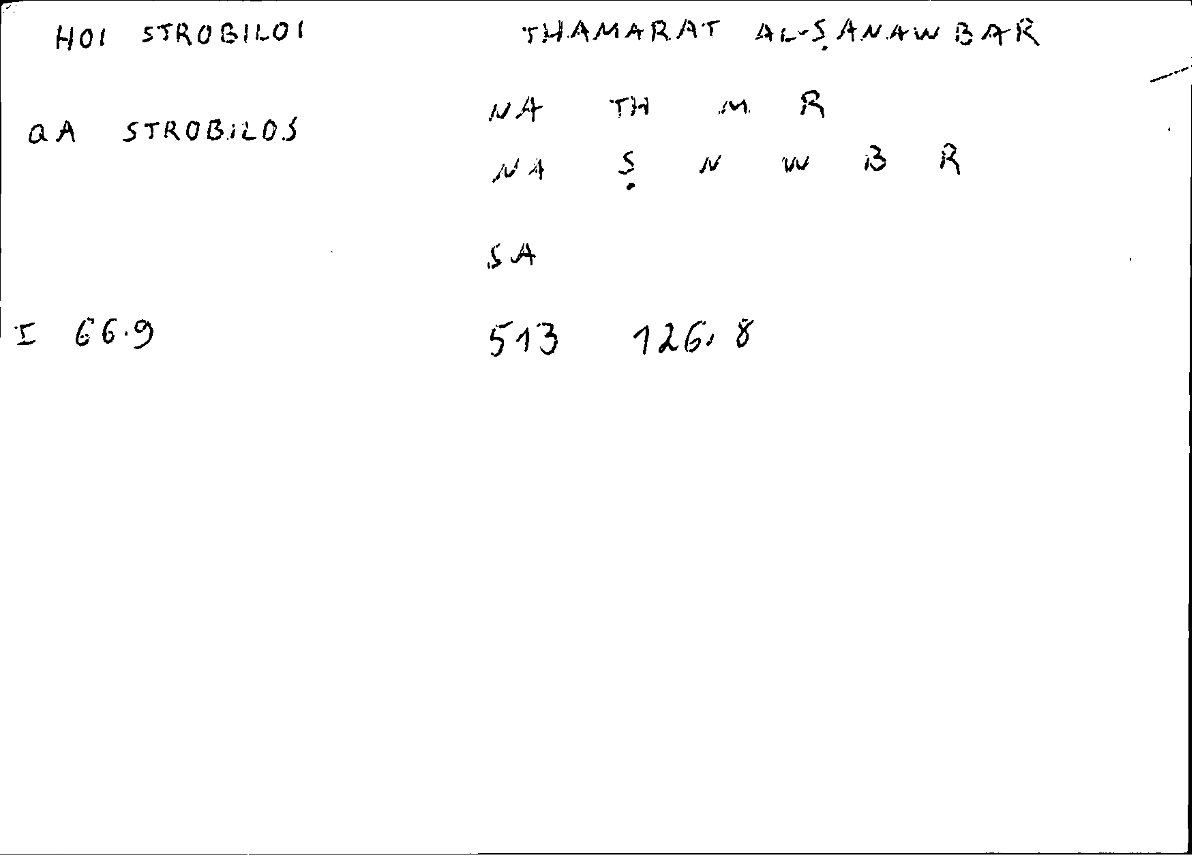 HOI STROBILOI THAMARAT AL-ṢANAWBAR
NA TH M R
QA STROBILOS
NA Ṣ N W B R
SA
I 66.9 513 126.8